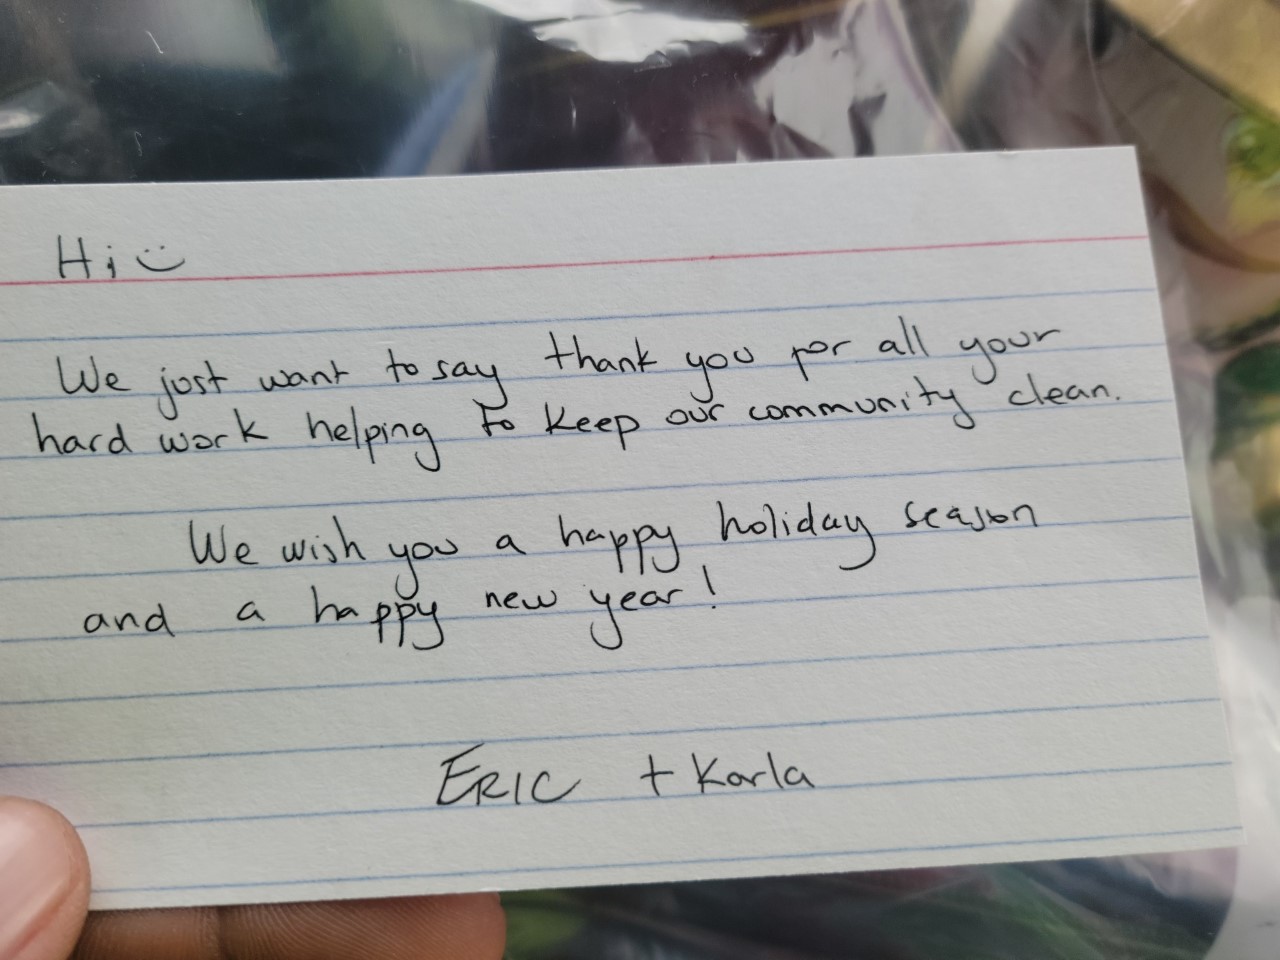 Hi :)
We just want to say thank you for all your
hard work helping to keep our community clean.
We wish you a happy holiday season
and a happy new year!
ERIC + Karla